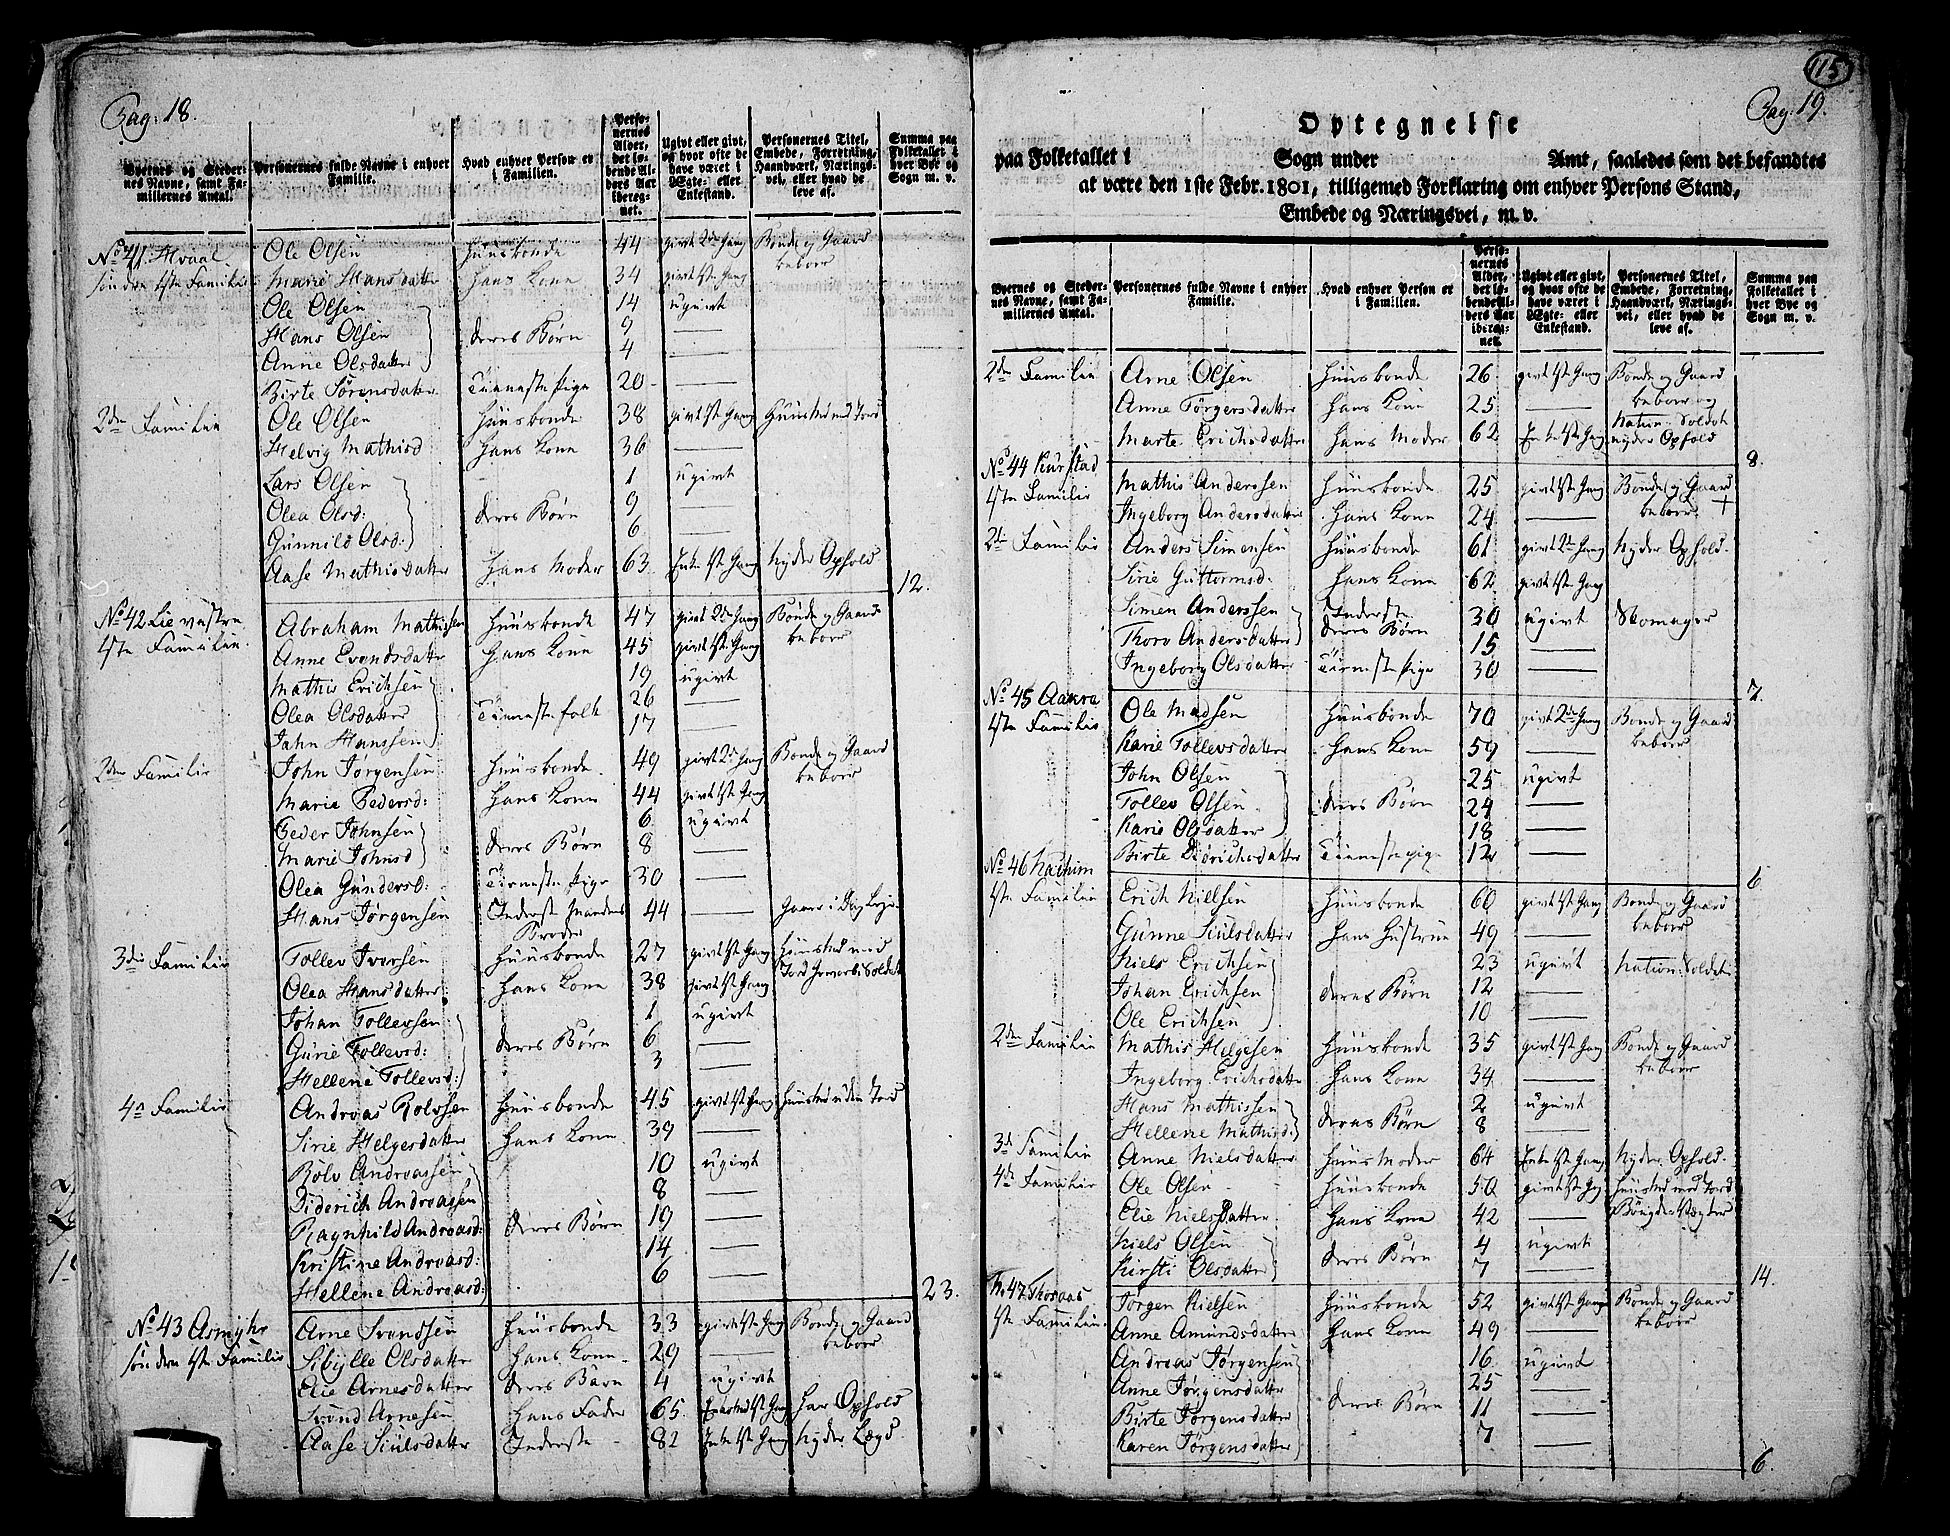 Pag: 18.
Byernes og Steder-
nes Navne, samt Fa-
millernes Antal.
Personernes fulde Navne i enhver
Familie.
Hvad enhver Person er
i Familien.
Perso-
nernes
Alder,
det lø-
bende Al-
ders Aar
iberegnet.
Ugivt eller givt,
og hvor ofte de
have været i
Ægte- eller
Enkestand.
Personernes Titel,
Embede, Forretning,
Haandværk, Nærings-
vei, eller hvad de
leve af.
Summa paa
Folketallet i
hver Bye og
Sogn m. v.
No 41. Hvaal Ole Olsen Huusbonde 44 givt 2den Gang Bonde og Gaard beboer
søndre 1ste Familie Marie Hansdatter Hans Kone 34 givt 1ste Gang
Ole Olsen 14 ugivt
Hans Olsen deres Børn 9 —
Anne Olsdatter 4 —
Birte Sørensdatter Tieneste Pige 20 —
2den Familie Ole Olsen Huusbonde 38 givt 1ste Gang Huusmd med Jord
Helvig Mathisd Hans Kone 36 —
Lars Olsen 1 ugivt
Olea Olsd: deres Børn 9 —
Gunnild Olsd: 6 —
Aase Mathisdatter Hans Moder 63 Enke 1ste Gang nyder Ophold 12.
No 42 Lie vestre Abraham Mathissen Huusbonde 47 givt 2den Gang Bonde og Gaard beboer
1ste Familie Anne Evendsdatter Hans Kone 45 givt 1ste Gang
Mathis Erichsen 19 ugivt
Olea Olsdatter Tieneste folk 26 —
Jahn Hanssen 17 —
2den Familie John Jørgensen Huusbonde 49 givt 2den Gang Bonde og Gaard beboer
Marie Pedersd: Hans Kone 44 givt 1ste Gang
Peder Johnsen deres Børn 6 ugivt
Marie Johnsd 8 —
Olea Gundersd: Tieneste Pige 30 —
Hans Jørgensen Inderste Mandens Broder 44 — Gaaer i Dag Leje
3die Familie Tollev Iversen Huusbonde 27 givt 1ste Gang Huusmd med
Olea Hansdatter Hans Kone 38 givt 1ste Gang
Johan Tollevsen 1 ugivt
Gurie Tollevsd: deres Børn 6 —
Hellene Tollevsd: 3 —
4de Familie Andreas Rolvsen Huusbonde 45 givt 1ste Gang Huusmd uden Jord
Sirie Helgesdatter Hans Kone 39 —
Rolv Andreassen 10 ugivt
Diderich Andreassen 8 —
Ragnhild Andreasd: deres Børn 19 —
Kristine Andreasd: 14 —
Hellene Andreasd: 6 — 23.
No 43 Asmyhr Arne Svendsen Huusbonde 33 givt 1ste Gang Bonde og Gaard beboer
søndre 1ste Familie Sibylle Olsdatter Hans Kone 29 —
Elie Arnesdatter deres Barn 4 ugivt
Svend Arnesen Hans Fader 65 Enkemd 1ste Gang har Ophold
Aase Siulsdatter Inderste 82 Enke 1ste Gang nyder Lægd
115
Pag: 19.
Optegnelse
paa Folketallet i Sogn under Amt, saaledes som det befandtes
at være den 1ste Febr. 1801, tilligemed Forklaring om enhver Persons Stand,
Embede og Næringsvei, m. v.
Byernes og Steder-
nes Navne, samt Fa-
millernes Antal.
Personernes fulde Navne i enhver
Familie.
Hvad enhver Person er
i Familien.
Perso-
nernes
Alder,
det lø-
bende Al-
ders Aar
iberegnet.
Ugivt eller givt,
og hvor ofte de
have været i
Ægte- eller
Enkestand.
Personernes Titel,
Embede, Forretning,
Haandværk, Nærings-
vei, eller hvad de
leve af.
Summa paa
Folketallet i
hver Bye og
Sogn m. v.
2den Familie Arne Olsen Huusbonde 26 givt 1ste Gang Bonde og Gaard beboer og
Anne Törgersdatter Hans Kone 25 — Nation: Soldat
Marte Erichsdatter Hans Moder 62 Enke 1ste Gang nyder Ophold 8.
No 44 Kurstad Mathis Anderssen Huusbonde 25 givt 1ste Gang Bonde og Gaard beboer +
1ste Familie Ingeborg Andersdatter Hans Kone 24 —
2den Familie Anders Simensen Huusbonde 61 givt 2den Gang nyder Ophold
Sirie Guttormsd. Hans Kone 62 givt 1ste Gang
Simen Anderssen Inderste 30 ugivt Skomager
Thore Andersdatter deres Børn 15 —
Ingeborg Olsdatter Tieneste Pige 30 — 7.
No 45 Aakra Ole Madsen Huusbonde 70 givt 2den Gang Bonde og Gaard beboer
1ste Familie Karie Tollevsdatter Hans Kone 59 —
John Olsen 25 ugivt
Tollev Olsen deres Børn 24 —
Karie Olsdatter 18 —
Birte Diørichsdatter Tieneste pige 12 — 6
No 46
1ste Familie Erich Nielsen Huusbonde 60 givt 1ste Gang Bonde og Gaard beboer
Gunne Siulsdatter Hans Hustrue 49 —
Niels Erichsen 23 ugivt Nation: Soldat
Johan Erichsen deres Børn 12 —
Ole Erichsen 10 —
2den Familie Mathis Helgesen Huusbonde 35 givt 1ste Gang Bonde og Gaard beboer
Ingeborg Erichsdatter Hans Kone 34 —
Hans Mathissen deres Børn 2 ugivt
Hellene Mathisd: 8 —
3die Familie Anne Nielsdatter Huus Moder 64 Enke 1ste Gang nyder Ophold
4de Familie Ole Olsen Huusbonde 50 givt 1ste Gang Huusmd med Jord
Elie Nielsdatter Hans Kone 42 —
Niels Olsen deres Børn 4 ugivt
Kirsti Olsdatter 7 — 14.
No 47 Thoraas Jørgen Nielsen Huusbonde 52 givt 1ste Gang Bonde og Gaard beboer
1ste Familie Anne Amundsdatter Hans Kone 49 —
Andreas Jørgensen 16 ugivt
Anne Jørgensdatter 25 —
Birte Jørgensdatter deres Børn 11 —
Karen Jørgensdatter 7 — 6.